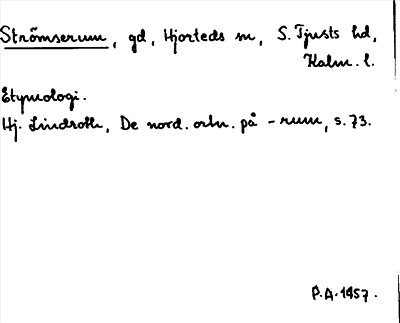 Strömserum, gd, Hjorteds sn, S. Tjusts hd,
Kalm. l.
Etymologi.
Hj. Lindroth, De nord. ortn. på -rum, s. 73.
P.A. 1457.